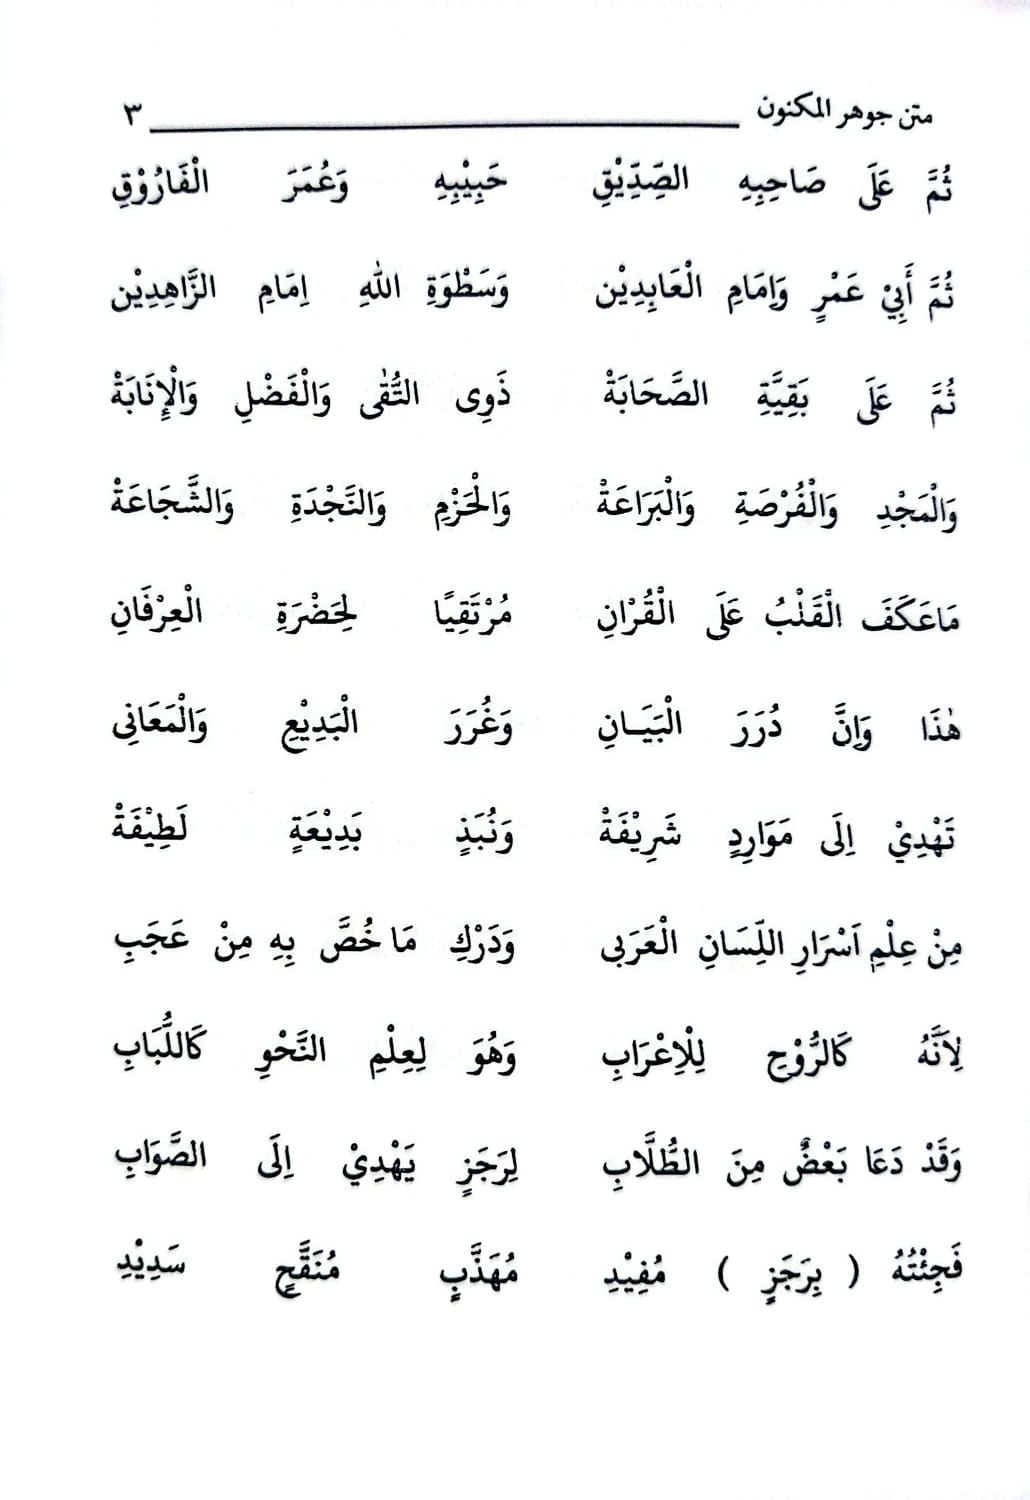 متن جوهر المكنون ٣
ثُمَّ عَلَى صَاحِبِهِ الصِّدِّيْقِ حَبِيْبِهِ وَعُمَرَ الْفَارُوْقِ
ثُمَّ أَبِيْ عَمْرٍ وَاِمَامِ الْعَابِدِيْن وَسَطْوَةِ اللهِ اِمَامِ الزَّاهِدِيْن
ثُمَّ عَلَى بَقِيَّةِ الصَّحَابَةْ ذَوِى التُّقٰى وَالْفَضْلِ وَالْإِنَابَةْ
وَالْمَجْدِ وَالْفُرْصَةِ وَالْبَرَاعَةْ وَالْحَزْمِ وَالنَّجْدَةِ وَالشَّجَاعَةْ
مَاعَكَفَ الْقَلْبُ عَلَى الْقُرْانِ مُرْتَقِيًا لِحَضْرَةِ الْعِرْفَانِ
هٰذَا وَاِنَّ دُرَرَ الْبَيَـانِ وَغُرَرَ الْبَدِيْعِ وَالْمَعَانِى
تَهْدِيْ اِلَى مَوَارِدٍ شَرِيْفَةْ وَنُبَذٍ بَدِيْعَةٍ لَطِيْفَةْ
مِنْ عِلْمِ اَسْرَارِ اللِّسَانِ الْعَرَبى وَدَرْكِ مَا خُصَّ بِهِ مِنْ عَجَبِ
لِاَنَّهُ كَالرُّوْحِ لِلْاِعْرَابِ وَهُوَ لِعِلْمِ النَّحْوِ كَاللُّبَابِ
وَقَدْ دَعَا بَعْضٌ مِنَ الطُّلَّابِ لِرَجَزٍ يَهْدِيْ اِلَى الصَّوَابِ
فَجِئْتُهُ ( بِرَجَزٍ ) مُفِيْدِ مُهَذَّبٍ مُنَقَّحٍ سَدِيْدِ